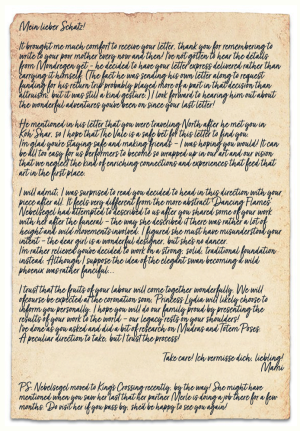 Mein lieber Schatz!
It brought me much comfort to receive your letter, thank you for remembering to
write to your poor mother every now and then! I've not gotten to hear the details
from Mondregen yet - he decided to have your letter express delivered rather than
carrying it himself. (The fact he was sending his own letter along to request
funding for his return leg probably played more of a part in that decision than
altruism, but it was still a kind gesture.) I look forward to hearing him out about
the wonderful adventures you've been on since your last letter!
He mentioned in his letter that you were travelling North after he met you in
Koh'Shar, so I hope that The Vale is a safe bet for this letter to find you.
I'm glad you're staying safe and making friends - I was hoping you would! It can
be all too easy for us performers to become so wrapped up in our art and our vision
that we neglect the kind of enriching connections and experiences that feed that
art in the first place.
I will admit, I was surprised to read you decided to head in this direction with your
piece after all. It feels very different from the more abstract 'Dancing Flames'
Nebelsegel had attempted to described to us after you shared some of your work
with her after the funeral - the way she described it there was rather a lot of
height and wild movements involved. I figured she must have misunderstood your
intent - the dear girl is a wonderful designer, but she's no dancer.
I'm rather relieved you've decided to work on a strong, solid, traditional foundation
instead. Although I suppose the idea of the elegant swan becoming a wild
phoenix was rather fanciful...
I trust that the fruits of your labour will come together wonderfully. We will
ofcourse be expected at the coronation soon, Princess Lydia will likely choose to
inform you personally. I hope you will do our family proud by presenting the
results of your work to the world - our legacy rests on your shoulders!
I've done as you asked and did a bit of research on Mudras and Totem Poses.
A peculiar direction to take, but I trust the process!
Take care! Ich vermisse dich, liebling!
Mami
PS: Nebelsegel moved to King's Crossing recently, by the way! She might have
mentioned when you saw her last that her partner Merle is doing a job there for a few
months. Do visit her if you pass by, she'd be happy to see you again!